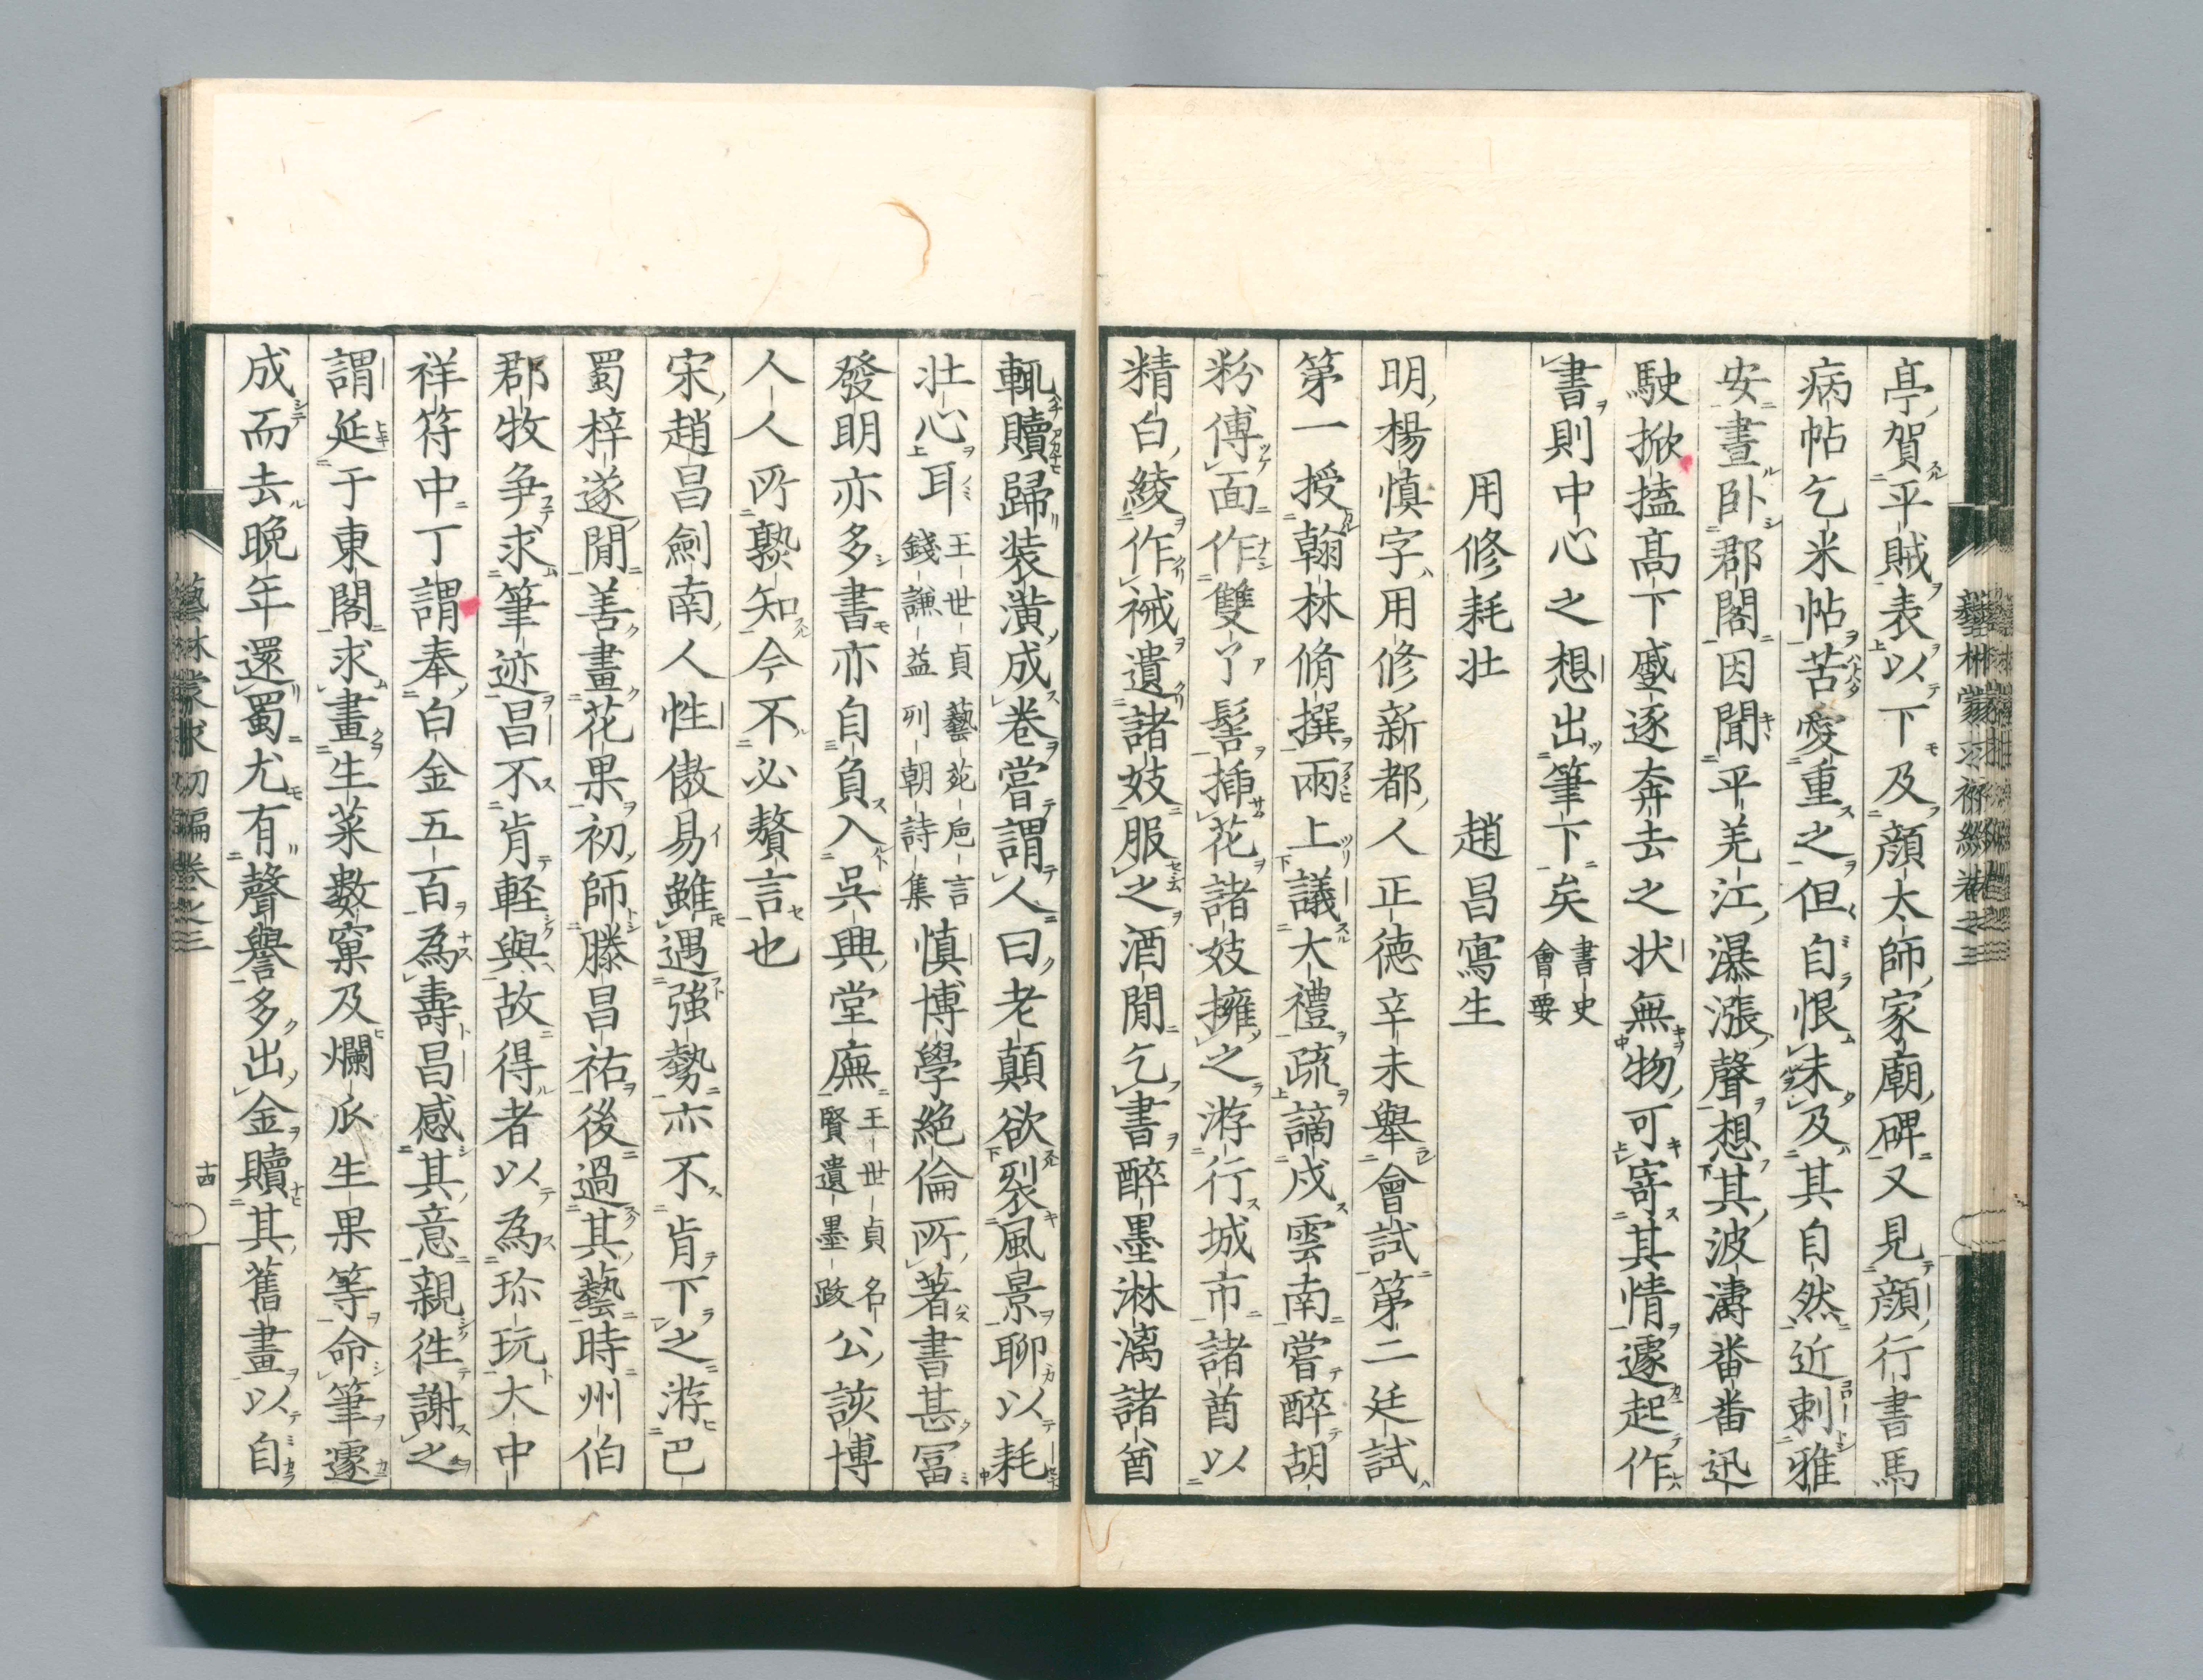 亭賀平賊表以下及顔太師家廟碑又見顔行書馬
病帖乞米帖苦愛重之但自恨未及其自然近刺雅
安晝卧郡閣因聞平羌江瀑漲聲想其波濤番番迅
駛掀搕髙下蹙逐奔去之状無物可寄其情遽起作
書則中心之想出筆下矣書史會要
用修耗壮　趙昌寫生
明楊慎字用修新都人正德辛未舉會試第二廷試
第一授翰林脩撰兩上議大禮疏謫戍雲南嘗醉胡
粉傅面作雙丫髻挿花諸妓擁之游行城市諸酋以
精白綾作裓遺諸妓服之酒間乞書醉墨淋漓諸酋
輒贖歸装潢成卷嘗謂人曰老顛欲裂風景聊以耗
壮心耳王世貞藝苑巵言錢謙益列朝詩集慎博學絶倫所著書甚冨
發明亦多書亦自負入呉興堂廡王世貞名賢遺墨跋公該博
人人所熟知今不必贅言也
宋趙昌劍南人性傲易雖遇強勢亦不肯下之游巴
蜀梓遂間善畫花果初師滕昌祐後過其藝時州伯
郡牧争求筆迹昌不肯軽與故得者以為珎玩大中
祥符中丁謂奉白金五百為壽昌感其意親徃謝之
謂延于東閣求畫生菜數窠及爛瓜生果等命筆遽
成而去晩年還蜀尤有聲譽多出金贖其舊畫以自
藝林蒙求初編巻之三
十四